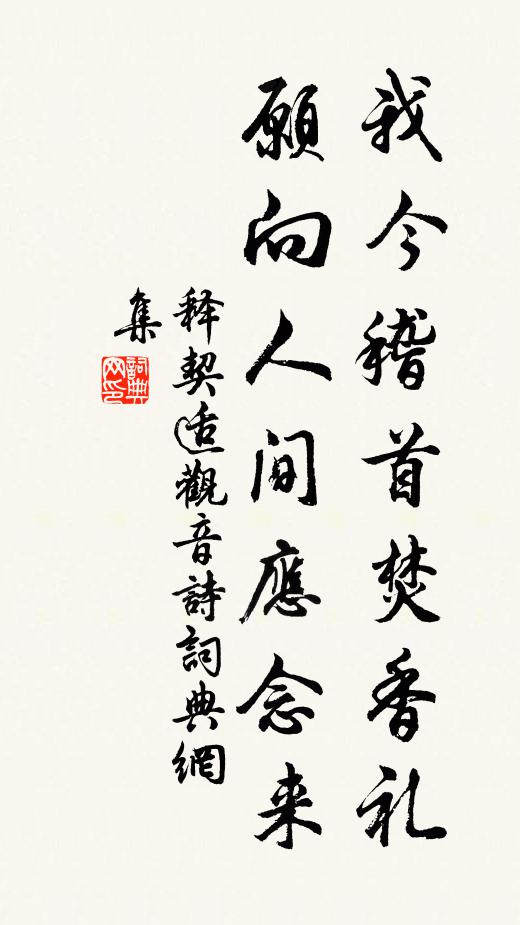 我今稽首焚香礼
願向人间應念来
释契适觀音詩詞典網
集
詞典
网印